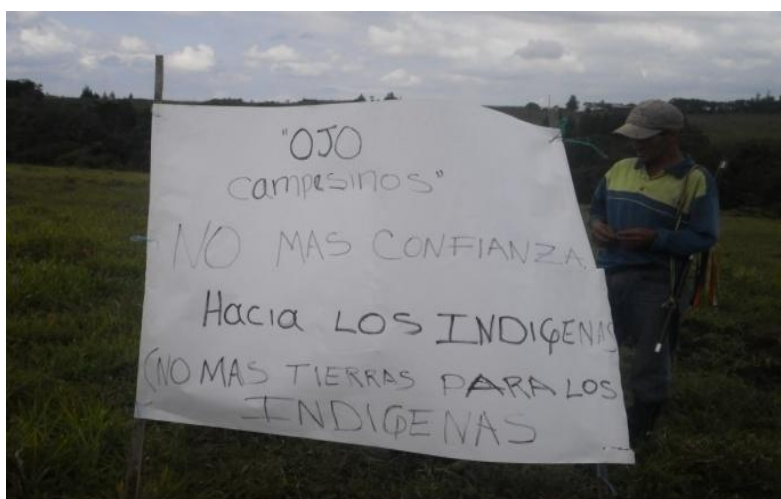 "OJO
campesinos"
NO MAS CONFIANZA
Hacia LOS INDIGENAS
(NO MAS TIERRAS PARA LOS
INDIGENAS